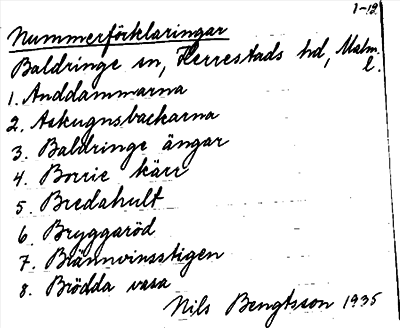 1-12.
Nummerförklaringar
Baldringe sn, Herrestads hd, Malm. l.
1. Anddammarna
2. Askugnsbackarna
3. Baldringe ängar
4. Borrie kärr
5. Bredahult
6. Bryggaröd
7. Brännvinsstigen
8. Brödda vasa
Nils Bengtsson 1935